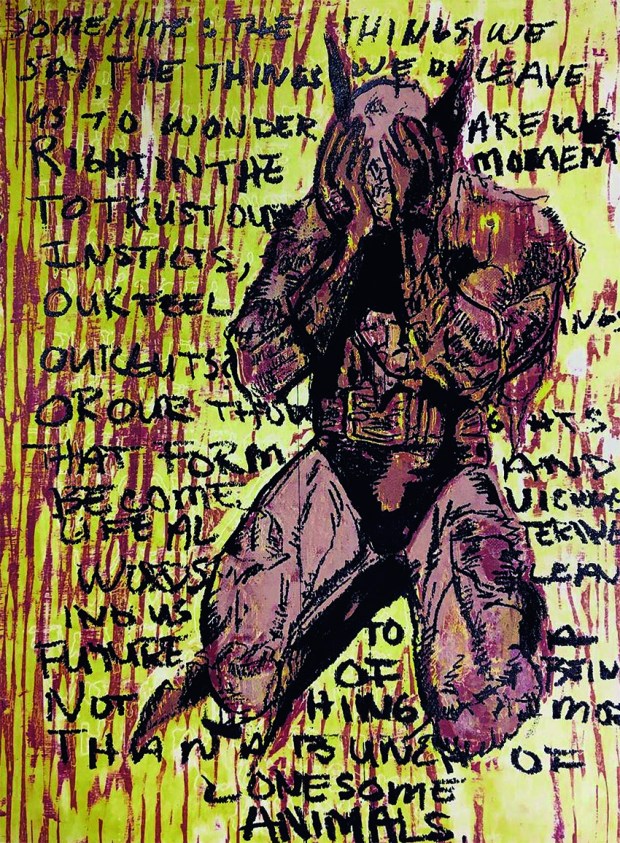 SOMETIMES THE THINGS WE
SAY, THE THINGS WE DO LEAVE
US TO WONDER ARE WE
RIGHT IN THE MOMENT
TO TRUST OUR
INSTICTS,
OUR FEEL INGS
OUR GUTS
OR OUR THOU GHTS
THAT FORM AND
BECOME
LIFE AL TERING
WORDS LEAV
ING US TO A
FUTURE OF BEIN
NOT HING MOR
THAN A BUNCH OF
LONESOME
ANIMALS.